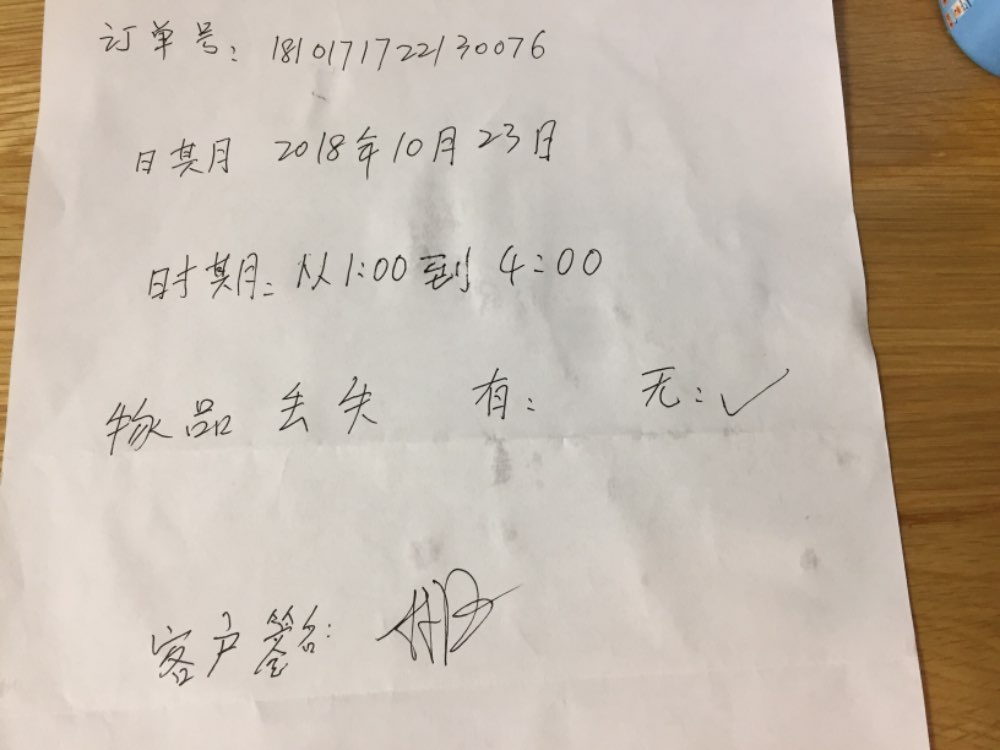 订单号：1810171722130076
日其月 2018年10月23日
时期：从1:00到4:00
物品丢失 有： 无：✓
客户签名：